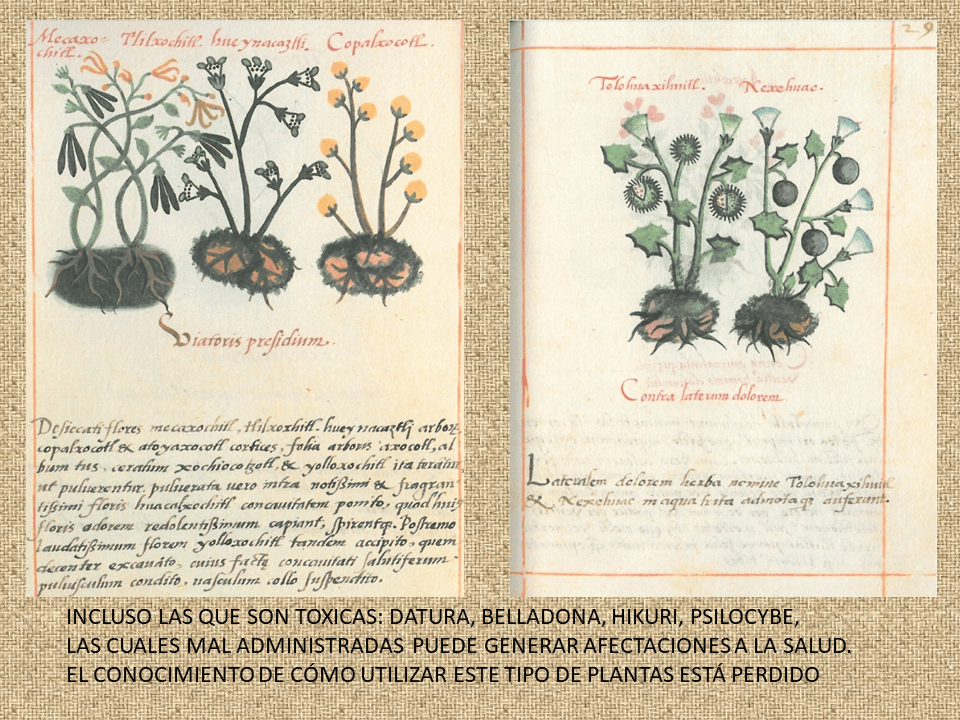 Mecaxo= Tlilxochitl. hueynacaztli. Copalxocotl.
chitl.
Viatoris presidium.
Desiccati flores mecaxochitl, tlilxochitl. hueynacaztli arboris
copalxocotl & atoyaxocotl cortices, folia arboris axocotl, al
bum tus, ceratum xochiocotzotl, & yolloxochitl ita terantur
ut pulverentur, pulverata vero intra notissimi & fragran
tissimi floris huacalxochitl concavitatem ponito, quod huius
floris odorem redolentissimum capiant, spirentq. Postremo
laudatissimum florem yolloxochitl tandem accipito, quem
decenter excavato, cuius factę concavitati salutiferum
pulvusculum condito, vasculum collo suspendito.
29
Tolohuaxihuitl. Nexehuac.
Contra laterum dolorem.
Lateralem dolorem herba nomine Tolohuaxihuitl
& Nexehuac in aqua trita admotaq auferunt.
INCLUSO LAS QUE SON TOXICAS: DATURA, BELLADONA, HIKURI, PSILOCYBE,
LAS CUALES MAL ADMINISTRADAS PUEDE GENERAR AFECTACIONES A LA SALUD.
EL CONOCIMIENTO DE CÓMO UTILIZAR ESTE TIPO DE PLANTAS ESTÁ PERDIDO